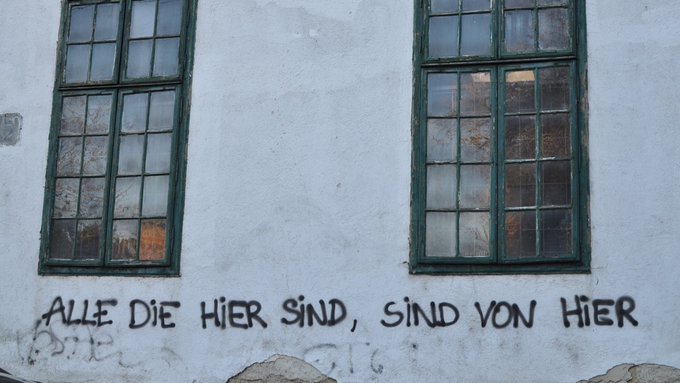 ALLE DIE HIER SIND, SIND VON HIER